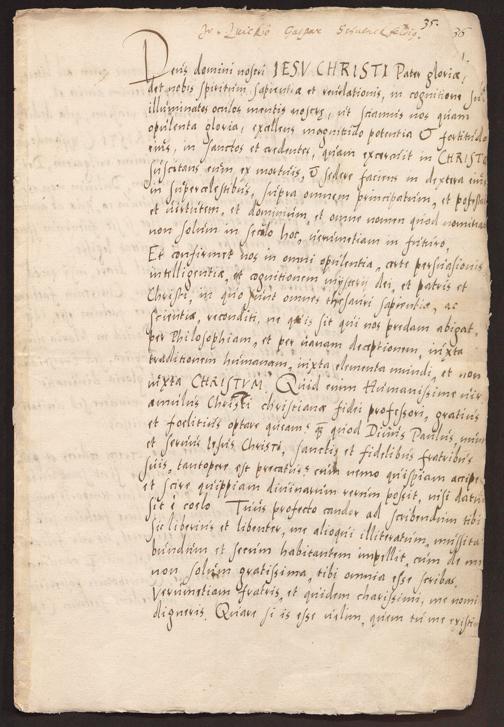 Gaspar
35.
36
Deus domini nostri IESV CHRISTI Pater gloriæ,
det nobis spiritum sapientiæ et revelationis, in cognitione sui
illuminatos oculos mentis nostræ, ut sciamus nos quam
opulenta gloria, excellens magnitudo potentiæ & fortitudo
eius, in sanctos et credentes, quam exeruit in CHRISTO
suscitans eum ex mortuis, & sedere faciens in dextera eius
in supercælestibus, supra omnem principatum, et potestat
et virtutem, et dominium, et omne nomen quod nominat
non solum in seculo hoc, verumetiam in futuro.
Et confirmet nos in omni opulentia, certe persuasionis
intelligentiæ, et cognitionem mysterij dei, et patris et
Christi, in quo sunt omnes thesauri sapientiæ, ac
scientiæ, reconditi, ne quis sit qui nos prædam abigat,
per Philosophiam, et per uanam deceptionem, iuxta
traditionem humanam, iuxta elementa mundi, et non
iuxta CHRISTVM. Quid enim Humanissime uir
æmulus Christi christianæ fidei professori, gratius
et fœlicius optare queam, quod Diuus Paulus,
et seruus Iesus Christi, sanctis et fidelibus fratribus
suis, tantopere est precatus cum nemo quispiam accipe
et scire quippiam diuinarum rerum possit, nisi datum
sit è cœlo. Tuus profecto candor ad scribendum tibi
sic liberius et libenter, me alioqui illiteratum, mussita
bundum et secum habitantem impellit, cum de me
non solum gratissima, tibi omnia esse scribas.
Verumetiam fratris, et quidem charissimi, me nomi
digneris. Quare si is esse uelim, quem tu me existim